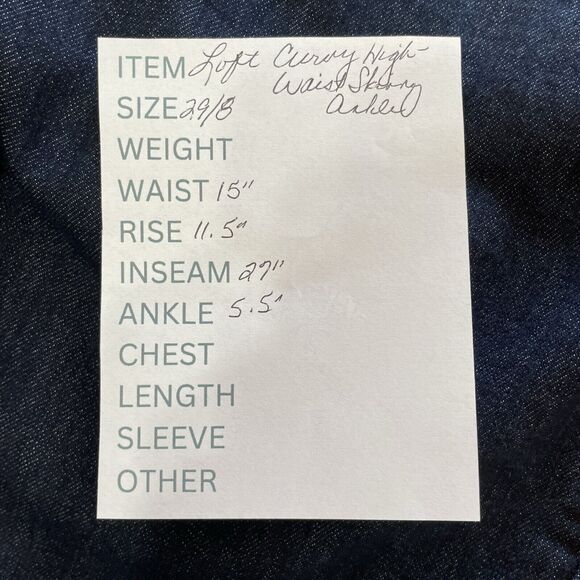 ITEM Loft Curvy High-
Waist Skinny
SIZE 29/8 Ankle
WEIGHT
WAIST 15"
RISE 11.5"
INSEAM 27"
ANKLE 5.5"
CHEST
LENGTH
SLEEVE
OTHER